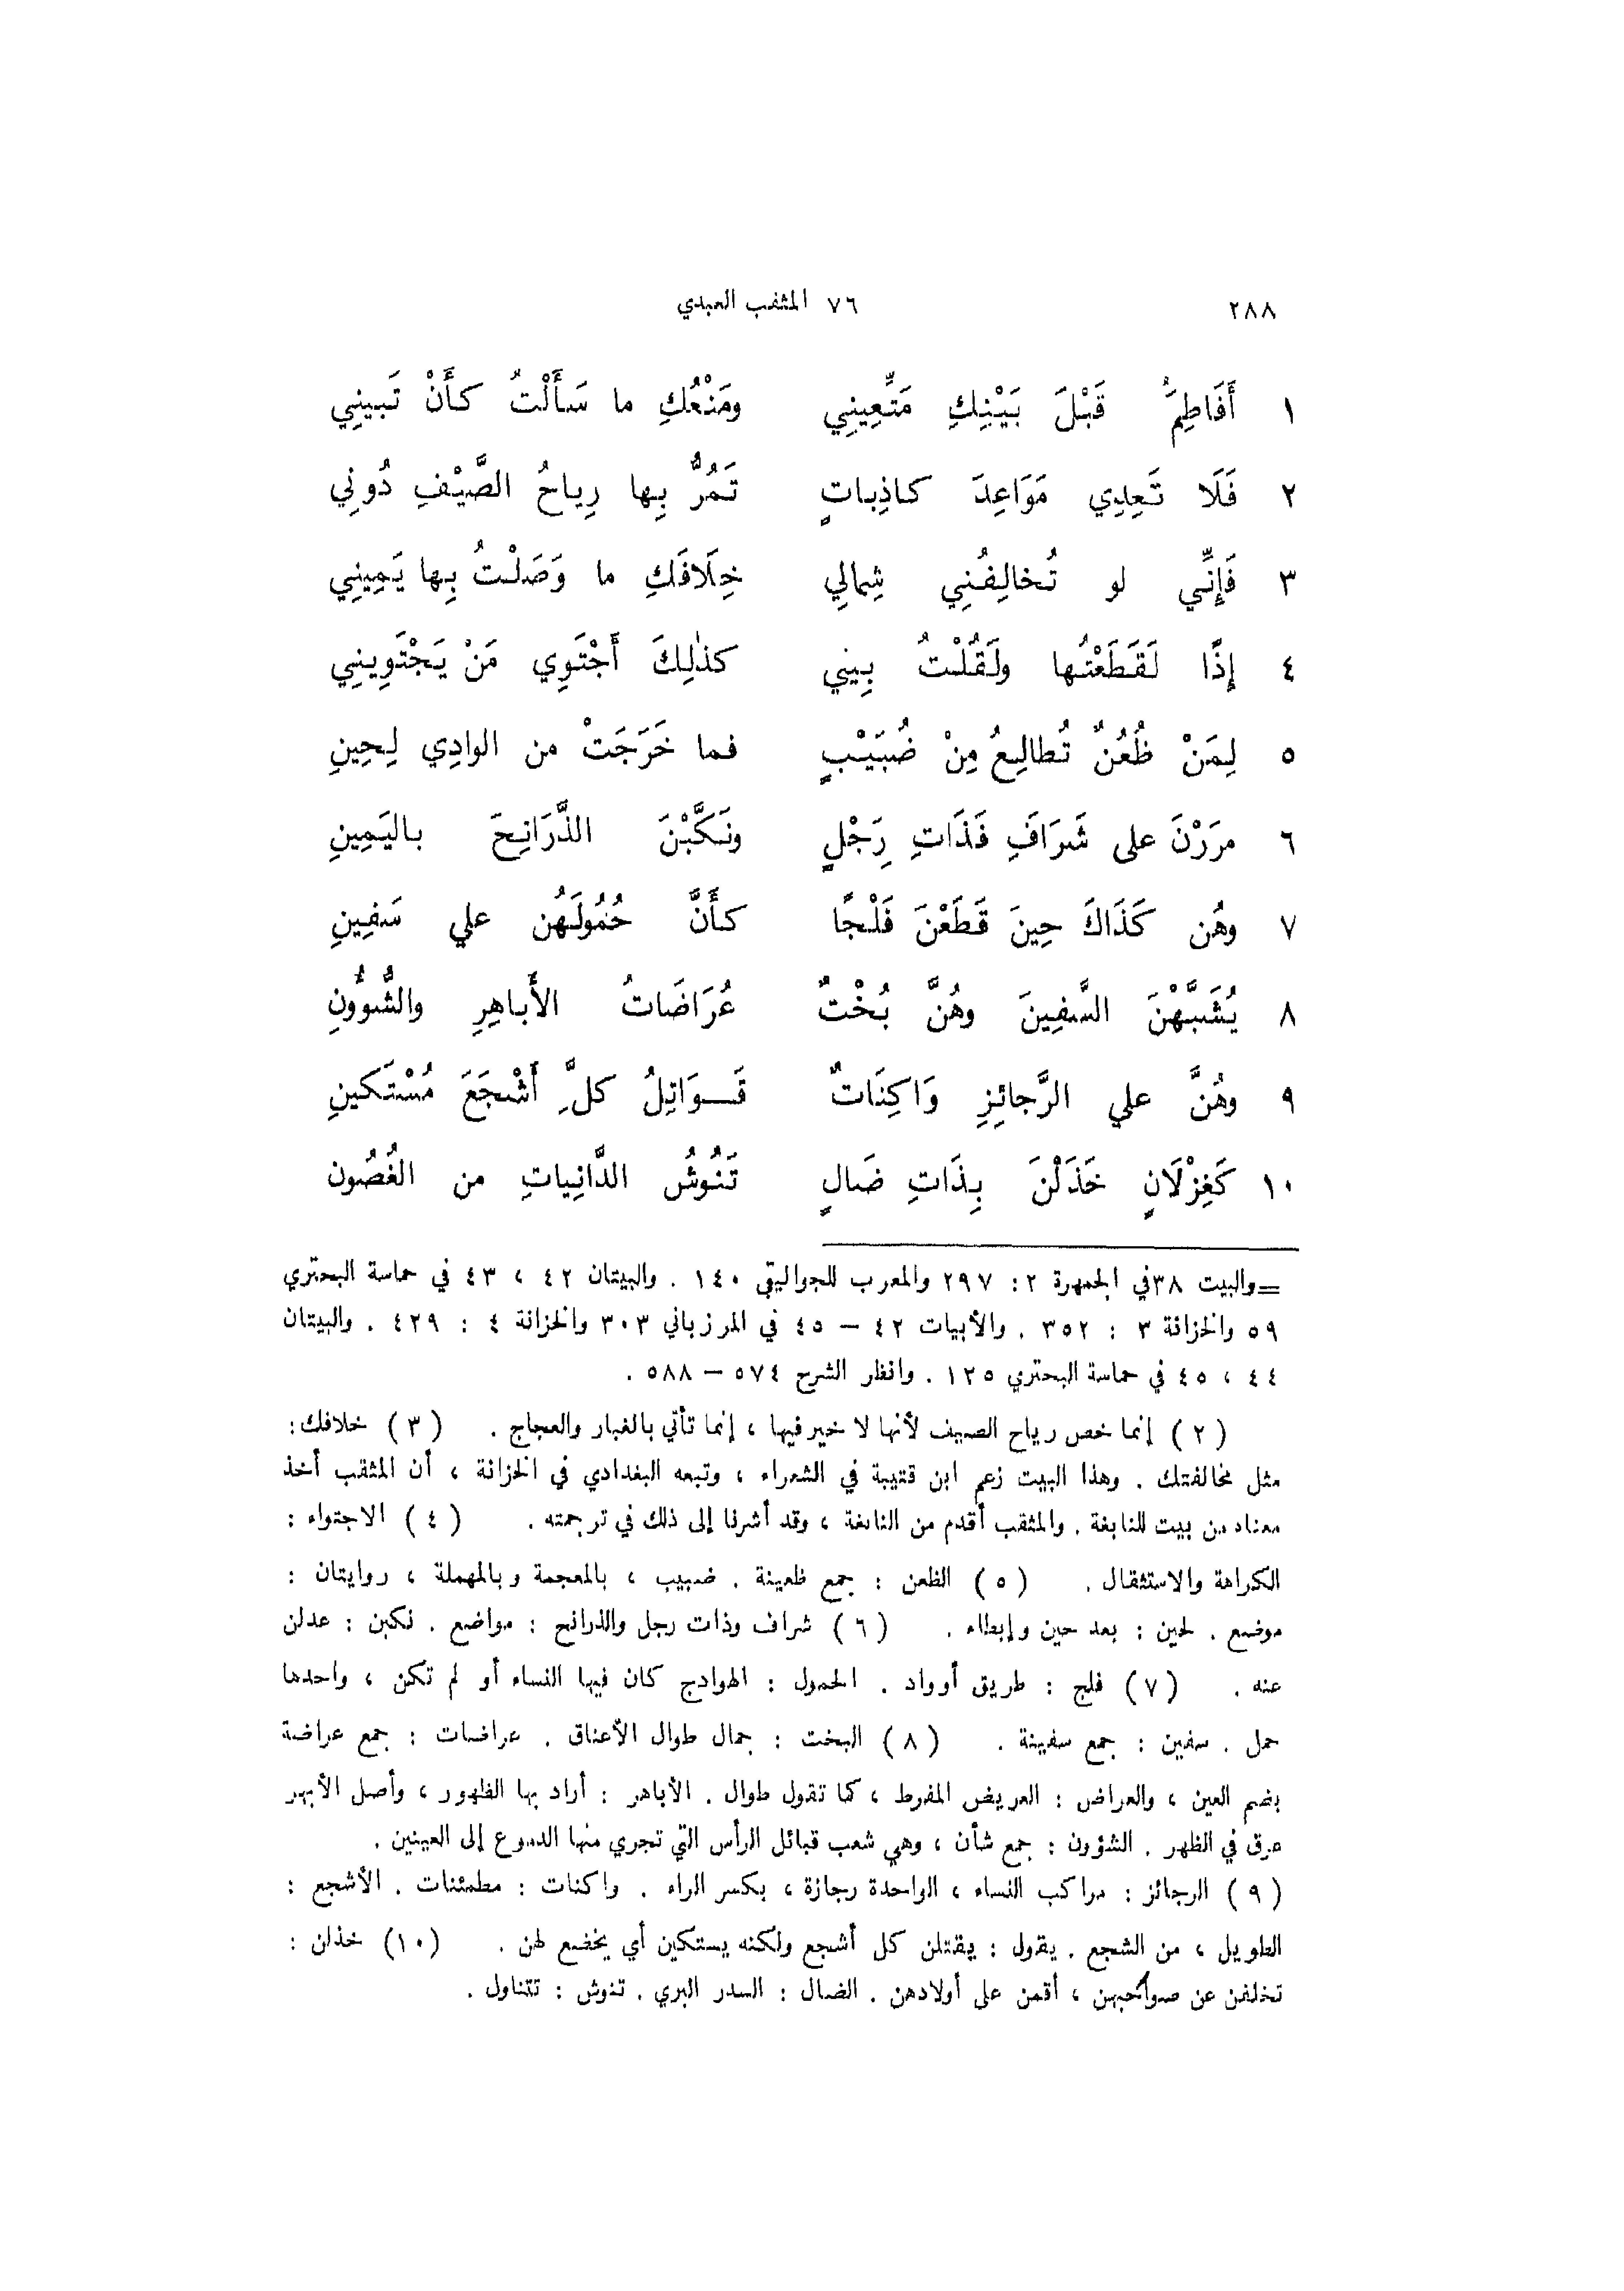 ٢٨٨ ٧٦ المثقب العبدي
١ أَفَاطِمُ قَبْلَ بَيْنِكِ مَتِّعِينِي ومَنْعُكِ ما سَأَلْتُ كأَنْ تَبينِي
٢ فَلَا تَعِدِي مَوَاعِدَ كاذِباتٍ تَمُرُّ بِها رِياحُ الصَّيْفِ دُونِي
٣ فَإِنِّي لو تُخالِفُنِي شِمالِي خِلَافَكِ ما وَصَلْتُ بِها يَمِينِي
٤ إِذًا لَقَطَعْتُها ولَقُلْتُ بِيني كذٰلِكَ أَجْتَوِي مَنْ يَجْتَوِينِي
٥ لِمَنْ ظُعُنٌ تُطالِعُ مِنْ ضُبَيْبٍ فما خَرَجَتْ من الوادِي لِحِينِ
٦ مرَرْنَ على شَرَافَ فَذَاتِ رِجْلٍ ونَكَّبْنَ الذَّرَانِحَ باليَمِينِ
٧ وهُن كَذَاكَ حِينَ قَطَعْنَ فَلْجًا كأَنَّ حُمُولَهُن علي سَفِينِ
٨ يُشَبَّهْنَ السَّفِينَ وهُنَّ بُخْتٌ عُرَاضَاتُ الأَباهِرِ والشُّوُونِ
٩ وهُنَّ علي الرَّجائِزِ وَاكِنَاتٌ قَـوَاتِلُ كلِّ أَشْجَعَ مُسْتَكينِ
١٠ كَغِزْلَانٍ خَذَلْنَ بِذَاتِ ضَالٍ تَنُوشُ الدَّانِياتِ من الغُصُون
=والبيت ٣٨ في الجمهرة ٢: ٢٩٧ والمعرب للجواليقي ١٤٠ . والبيتان ٤٢ ، ٤٣ في حماسة البحتري
٥٩ والخزانة ٣ : ٣٥٢ . والأبيات ٤٢ – ٤٥ في المرزباني ٣٠٣ والخزانة ٤ : ٤٢٩ . والبيتان
٤٤ ، ٤٥ في حماسة البحتري ١٢٥ . وانظر الشرح ٥٧٤ – ٥٨٨ .
( ٢ ) إنما خص رياح الصيف لأنها لا خير فيها ، إنما تأتي بالغبار والعجاج . ( ٣ ) خلافك :
مثل مخالفتك . وهذا البيت زعم ابن قتيبة في الشعراء ، وتبعه البغدادي في الخزانة ، أن المثقب أخذ
معناه من بيت للنابغة . والمثقب أقدم من النابغة ، وقد أشرنا إلى ذلك في ترجمته . ( ٤ ) الاجتواء :
الكراهة والاستثقال . ( ٥ ) الظعن : جمع ظعينة . ضبيب ، بالمعجمة وبالمهملة ، روايتان :
موضع . لحين : بعد حين وإبطاء . ( ٦ ) شراف وذات رجل والذرانح : مواضع . نكبن : عدلن
عنه . ( ٧ ) فلج : طريق أوواد . الحمول : الهوادج كان فيها النساء أو لم تكن ، واحدها
حمل . سفين : جمع سفينة . ( ٨ ) البخت : جمال طوال الأعناق . عراضات : جمع عراضة
بضم العين ، والعراض : العريض المفرط ، كما تقول طوال . الأباهر : أراد بها الظهور ، وأصل الأبهر
عرق في الظهر . الشؤون : جمع شأن ، وهي شعب قبائل الرأس التي تجري منها الدموع إلى العينين .
( ٩ ) الرجائز : مراكب النساء ، الواحدة رجازة ، بكسر الراء . واكنات : مطمئنات . الأشجع :
الطويل ، من الشجع . يقول : يقتلن كل أشجع ولكنه يستكين أي يخضع لهن . (١٠) خذلن :
تخلفن عن صواحبهن ، أقمن على أولادهن . الضال : السدر البري . تنوش : تتناول .